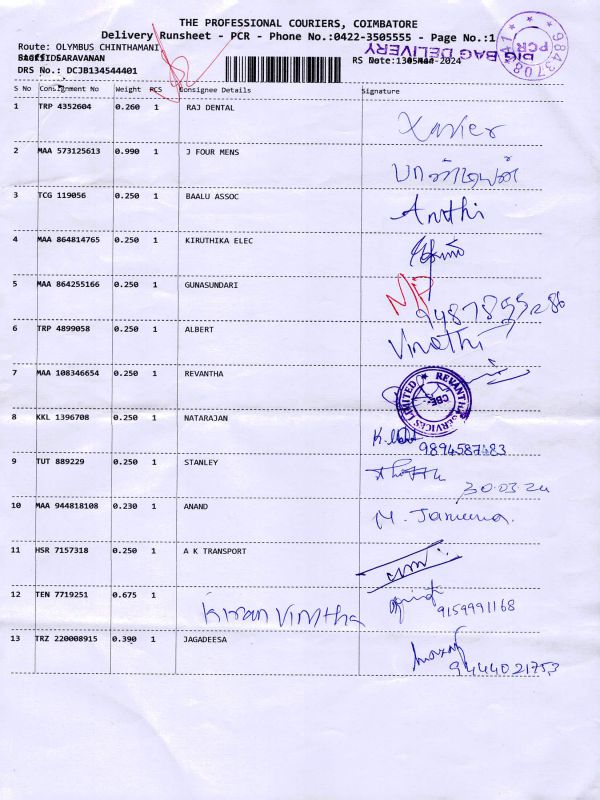 THE PROFESSIONAL COURIERS, COIMBATORE
Delivery Runsheet - PCR - Phone No.:0422-3505555 - Page No.:1
Route: OLYMBUS CHINTHAMANI
SARAVANAN
DRS No.: DCJB134544401
BIG BAG DELIVERY
PCR
S No Consignment No Weight PCS Consignee Details Signature
1 TRP 4352604 0.260 1 RAJ DENTAL Xavier
2 MAA 573125613 0.990 1 J FOUR MENS
3 TCG 119056 0.250 1 BAALU ASSOC Anthi
4 MAA 864814765 0.250 1 KIRUTHIKA ELEC
5 MAA 864255166 0.250 1 GUNASUNDARI
6 TRP 4899058 0.250 1 ALBERT Vinothi
7 MAA 108346654 0.250 1 REVANTHA
REVANTHA SERVICES LIMITED
CBE
8 KKL 1396708 0.250 1 NATARAJAN 9894587483
9 TUT 889229 0.250 1 STANLEY
30.03.24
10 MAA 944818108 0.230 1 ANAND M. Jamuna.
11 HSR 7157318 0.250 1 A K TRANSPORT
12 TEN 7719251 0.675 1 Kiran Vinotha 9159991168
13 TRZ 220008915 0.390 1 JAGADEESA
9444021753